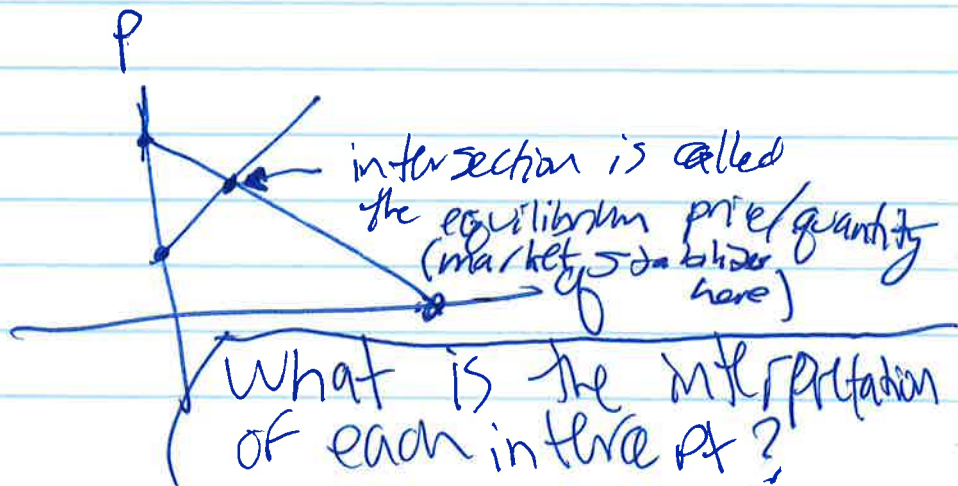 P
intersection is called
the equilibrium price/quantity
(market stabilizes
here)
q
What is the interpretation
of each intercept?